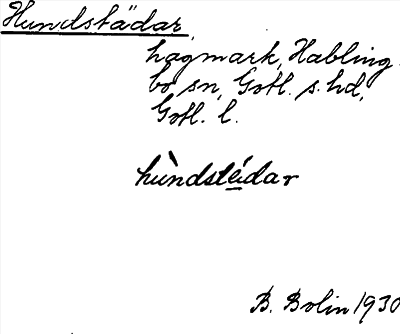 Hundstädar,
hagmark, Habling-
bo sn, Gotl. s. hd,
Gotl. l.
hùndstédar
B. Bolin 1930